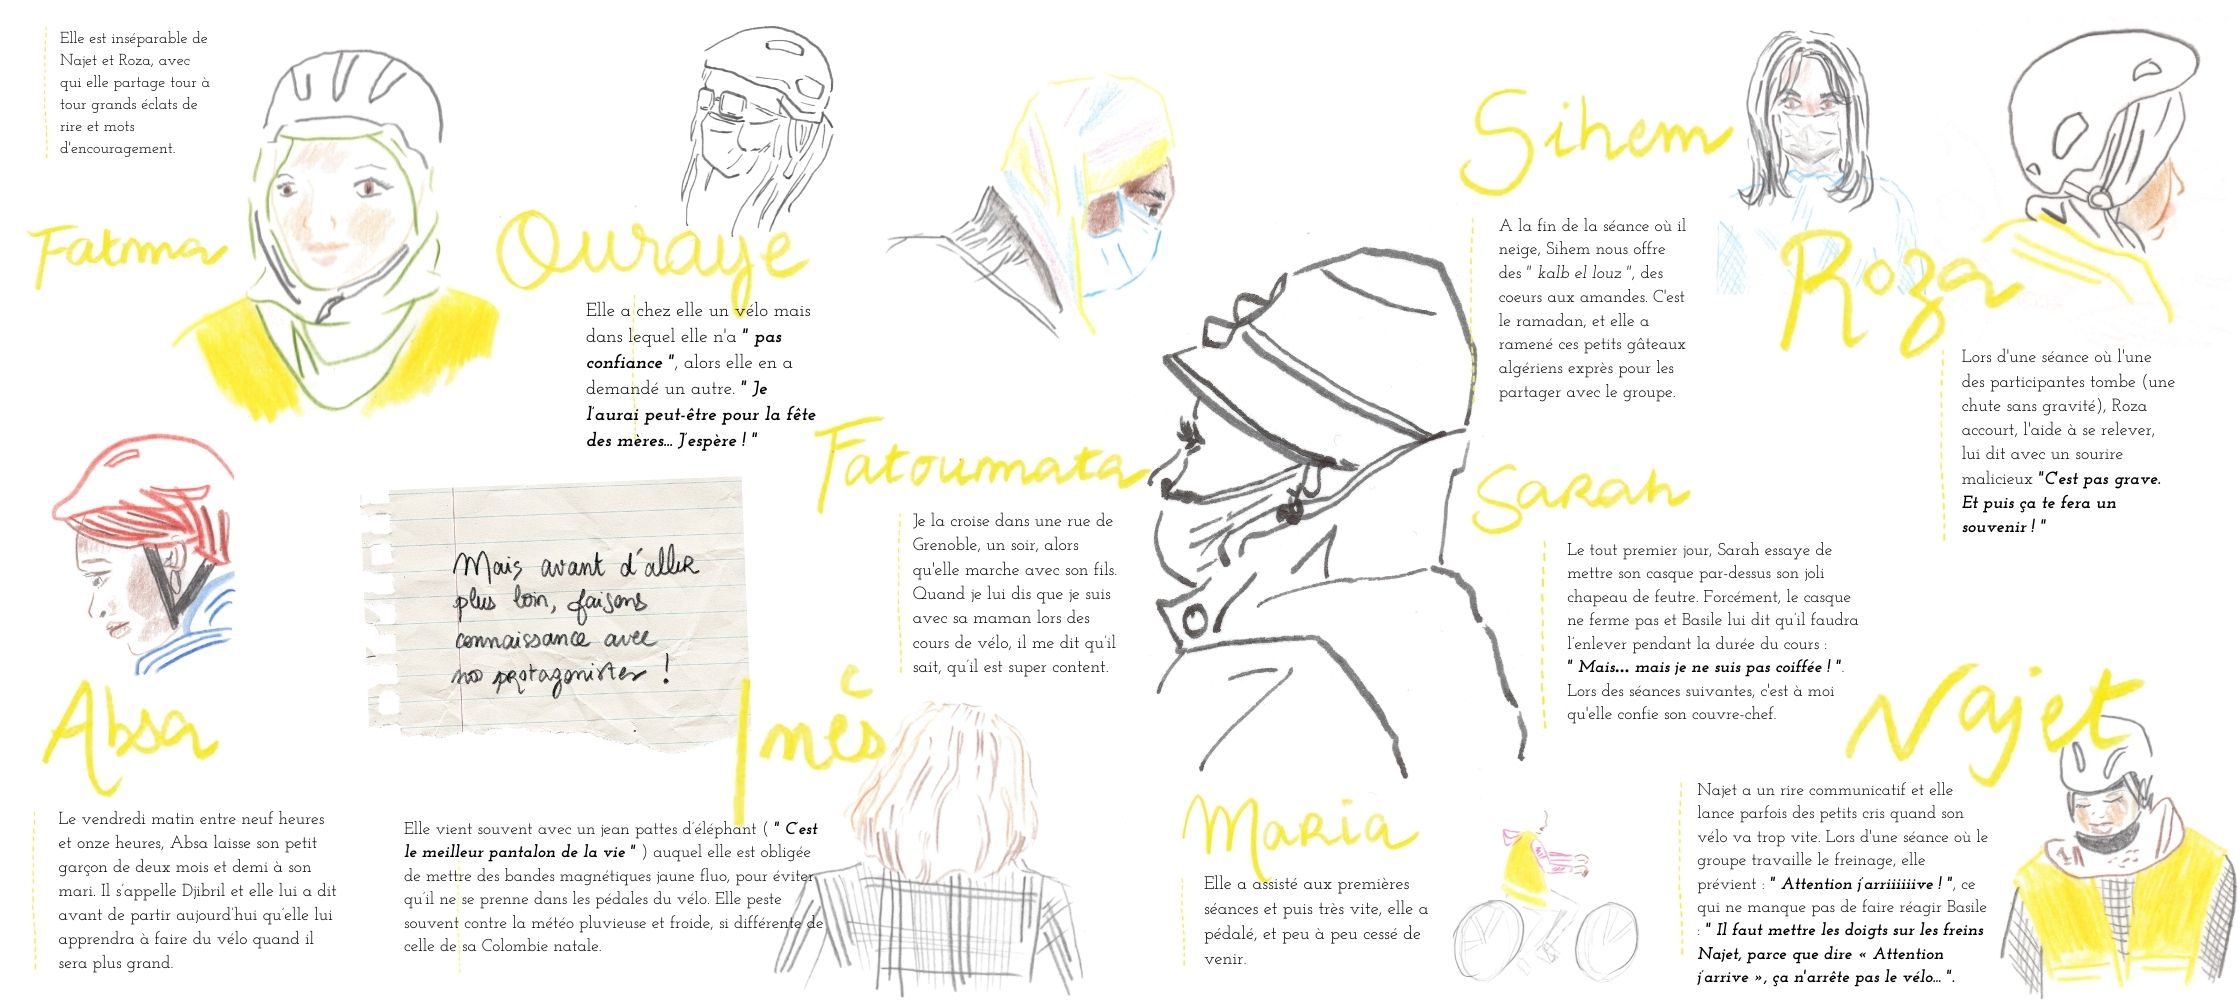 Elle est inséparable de
Najet et Roza, avec
qui elle partage tour à
tour grands éclats de
rire et mots
d'encouragement.
Fatma
Ouraye
Elle a chez elle un vélo mais
dans lequel elle n'a " pas
confiance ", alors elle en a
demandé un autre. " Je
l'aurai peut-être pour la fête
des mères... J'espère ! "
Absa
Le vendredi matin entre neuf heures
et onze heures, Absa laisse son petit
garçon de deux mois et demi à son
mari. Il s'appelle Djibril et elle lui a dit
avant de partir aujourd'hui qu'elle lui
apprendra à faire du vélo quand il
sera plus grand.
Mais avant d'aller
plus loin, faisons
connaissance avec
nos protagonistes !
Inès
Elle vient souvent avec un jean pattes d'éléphant ( " C'est
le meilleur pantalon de la vie " ) auquel elle est obligée
de mettre des bandes magnétiques jaune fluo, pour éviter
qu'il ne se prenne dans les pédales du vélo. Elle peste
souvent contre la météo pluvieuse et froide, si différente de
celle de sa Colombie natale.
Fatoumata
Je la croise dans une rue de
Grenoble, un soir, alors
qu'elle marche avec son fils.
Quand je lui dis que je suis
avec sa maman lors des
cours de vélo, il me dit qu'il
sait, qu'il est super content.
Sihem
A la fin de la séance où il
neige, Sihem nous offre
des " kalb el louz ", des
coeurs aux amandes. C'est
le ramadan, et elle a
ramené ces petits gâteaux
algériens exprès pour les
partager avec le groupe.
Roza
Lors d'une séance où l'une
des participantes tombe (une
chute sans gravité), Roza
accourt, l'aide à se relever,
lui dit avec un sourire
malicieux "C'est pas grave.
Et puis ça te fera un
souvenir ! "
Sarah
Le tout premier jour, Sarah essaye de
mettre son casque par-dessus son joli
chapeau de feutre. Forcément, le casque
ne ferme pas et Basile lui dit qu'il faudra
l'enlever pendant la durée du cours :
" Mais... mais je ne suis pas coiffée ! ".
Lors des séances suivantes, c'est à moi
qu'elle confie son couvre-chef.
Maria
Elle a assisté aux premières
séances et puis très vite, elle a
pédalé, et peu à peu cessé de
venir.
Najet
Najet a un rire communicatif et elle
lance parfois des petits cris quand son
vélo va trop vite. Lors d'une séance où le
groupe travaille le freinage, elle
prévient : " Attention j'arriiiiiive ! ", ce
qui ne manque pas de faire réagir Basile
: " Il faut mettre les doigts sur les freins
Najet, parce que dire « Attention
j'arrive », ça n'arrête pas le vélo... ".